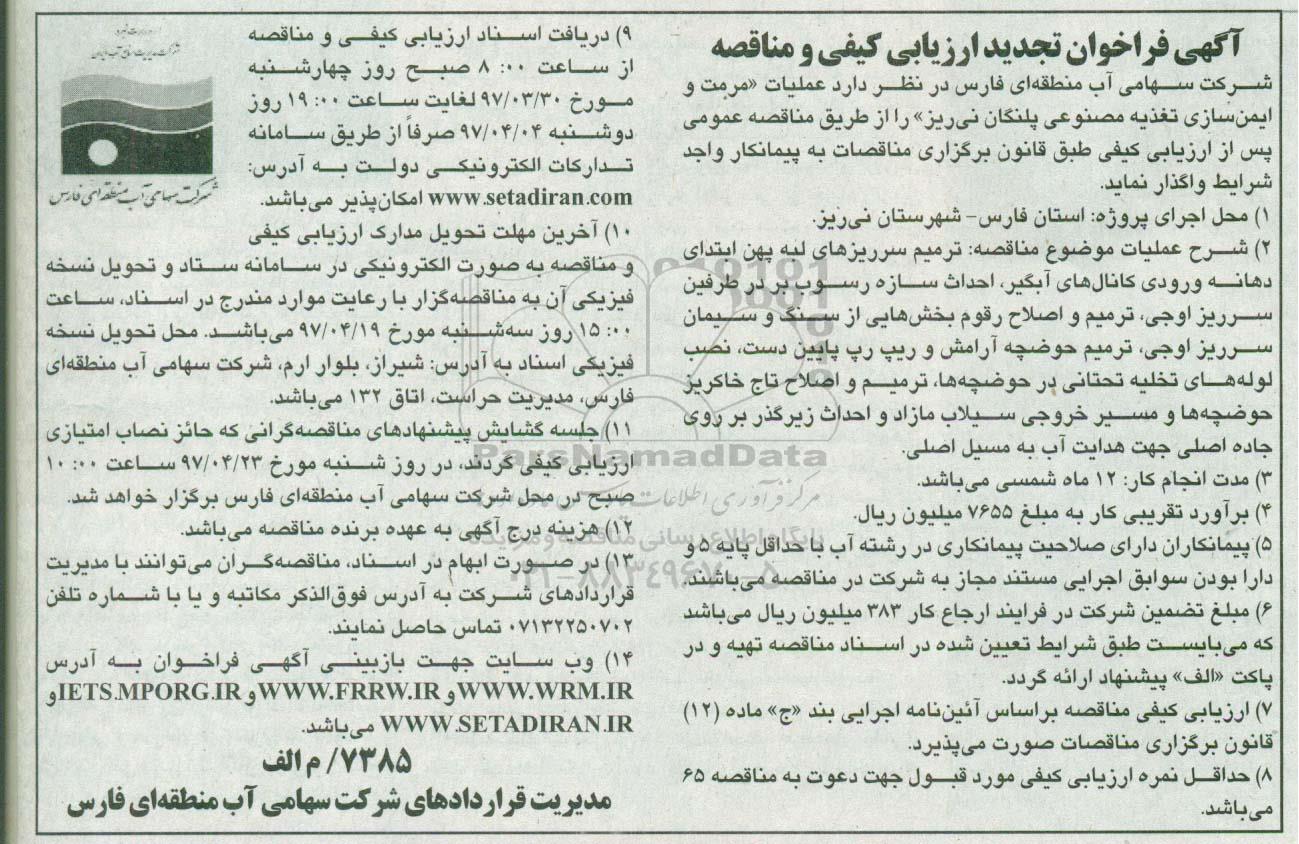 آگهی فراخوان تجدید ارزیابی کیفی و مناقصه
شرکت سهامی آب منطقه‌ای فارس در نظر دارد عملیات «مرمت و
ایمن‌سازی تغذیه مصنوعی پلنگان نی‌ریز» را از طریق مناقصه عمومی
پس از ارزیابی کیفی طبق قانون برگزاری مناقصات به پیمانکار واجد
شرایط واگذار نماید.
۱) محل اجرای پروژه: استان فارس- شهرستان نی‌ریز.
۲) شرح عملیات موضوع مناقصه: ترمیم سرریزهای لبه پهن ابتدای
دهانه ورودی کانال‌های آبگیر، احداث سازه رسوب بر در طرفین
سرریز اوجی، ترمیم و اصلاح رقوم بخش‌هایی از سنگ و سیمان
سرریز اوجی، ترمیم حوضچه آرامش و ریپ رپ پایین دست، نصب
لوله‌های تخلیه تحتانی در حوضچه‌ها، ترمیم و اصلاح تاج خاکریز
حوضچه‌ها و مسیر خروجی سیلاب مازاد و احداث زیرگذر بر روی
جاده اصلی جهت هدایت آب به مسیل اصلی.
۳) مدت انجام کار: ۱۲ ماه شمسی می‌باشد.
۴) برآورد تقریبی کار به مبلغ ۷۶۵۵ میلیون ریال.
۵) پیمانکاران دارای صلاحیت پیمانکاری در رشته آب با حداقل پایه ۵ و
دارا بودن سوابق اجرایی مستند مجاز به شرکت در مناقصه می‌باشند.
۶) مبلغ تضمین شرکت در فرایند ارجاع کار ۳۸۳ میلیون ریال می‌باشد
که می‌بایست طبق شرایط تعیین شده در اسناد مناقصه تهیه و در
پاکت «الف» پیشنهاد ارائه گردد.
۷) ارزیابی کیفی مناقصه براساس آئین‌نامه اجرایی بند «ج» ماده (۱۲)
قانون برگزاری مناقصات صورت می‌پذیرد.
۸) حداقل نمره ارزیابی کیفی مورد قبول جهت دعوت به مناقصه ۶۵
می‌باشد.
۹) دریافت اسناد ارزیابی کیفی و مناقصه
از ساعت ۸:۰۰ صبح روز چهارشنبه
مورخ ۹۷/۰۳/۳۰ لغایت ساعت ۱۹:۰۰ روز
دوشنبه ۹۷/۰۴/۰۴ صرفاً از طریق سامانه
تدارکات الکترونیکی دولت به آدرس:
www.setadiran.com امکان‌پذیر می‌باشد.
۱۰) آخرین مهلت تحویل مدارک ارزیابی کیفی
و مناقصه به صورت الکترونیکی در سامانه ستاد و تحویل نسخه
فیزیکی آن به مناقصه‌گزار با رعایت موارد مندرج در اسناد، ساعت
۱۵:۰۰ روز سه‌شنبه مورخ ۹۷/۰۴/۱۹ می‌باشد. محل تحویل نسخه
فیزیکی اسناد به آدرس: شیراز، بلوار ارم، شرکت سهامی آب منطقه‌ای
فارس، مدیریت حراست، اتاق ۱۳۲ می‌باشد.
۱۱) جلسه گشایش پیشنهادهای مناقصه‌گرانی که حائز نصاب امتیازی
ارزیابی کیفی گردند، در روز شنبه مورخ ۹۷/۰۴/۲۳ ساعت ۱۰:۰۰
صبح در محل شرکت سهامی آب منطقه‌ای فارس برگزار خواهد شد.
۱۲) هزینه درج آگهی به عهده برنده مناقصه می‌باشد.
۱۳) در صورت ابهام در اسناد، مناقصه‌گران می‌توانند با مدیریت
قراردادهای شرکت به آدرس فوق‌الذکر مکاتبه و یا با شماره تلفن
۰۷۱۳۲۲۵۰۷۰۲ تماس حاصل نمایند.
۱۴) وب سایت جهت بازبینی آگهی فراخوان به آدرس
WWW.WRM.IR و WWW.FRRW.IR و IETS.MPORG.IR و
WWW.SETADIRAN.IR می‌باشد.
۷۳۸۵/ م الف
مدیریت قراردادهای شرکت سهامی آب منطقه‌ای فارس
شرکت سهامی آب منطقه‌ای فارس
ParsNamadData
پایگاه اطلاع رسانی مناقصه و مزایده
۰۲۱-۸۸۳۴۹۶۷۰-۵